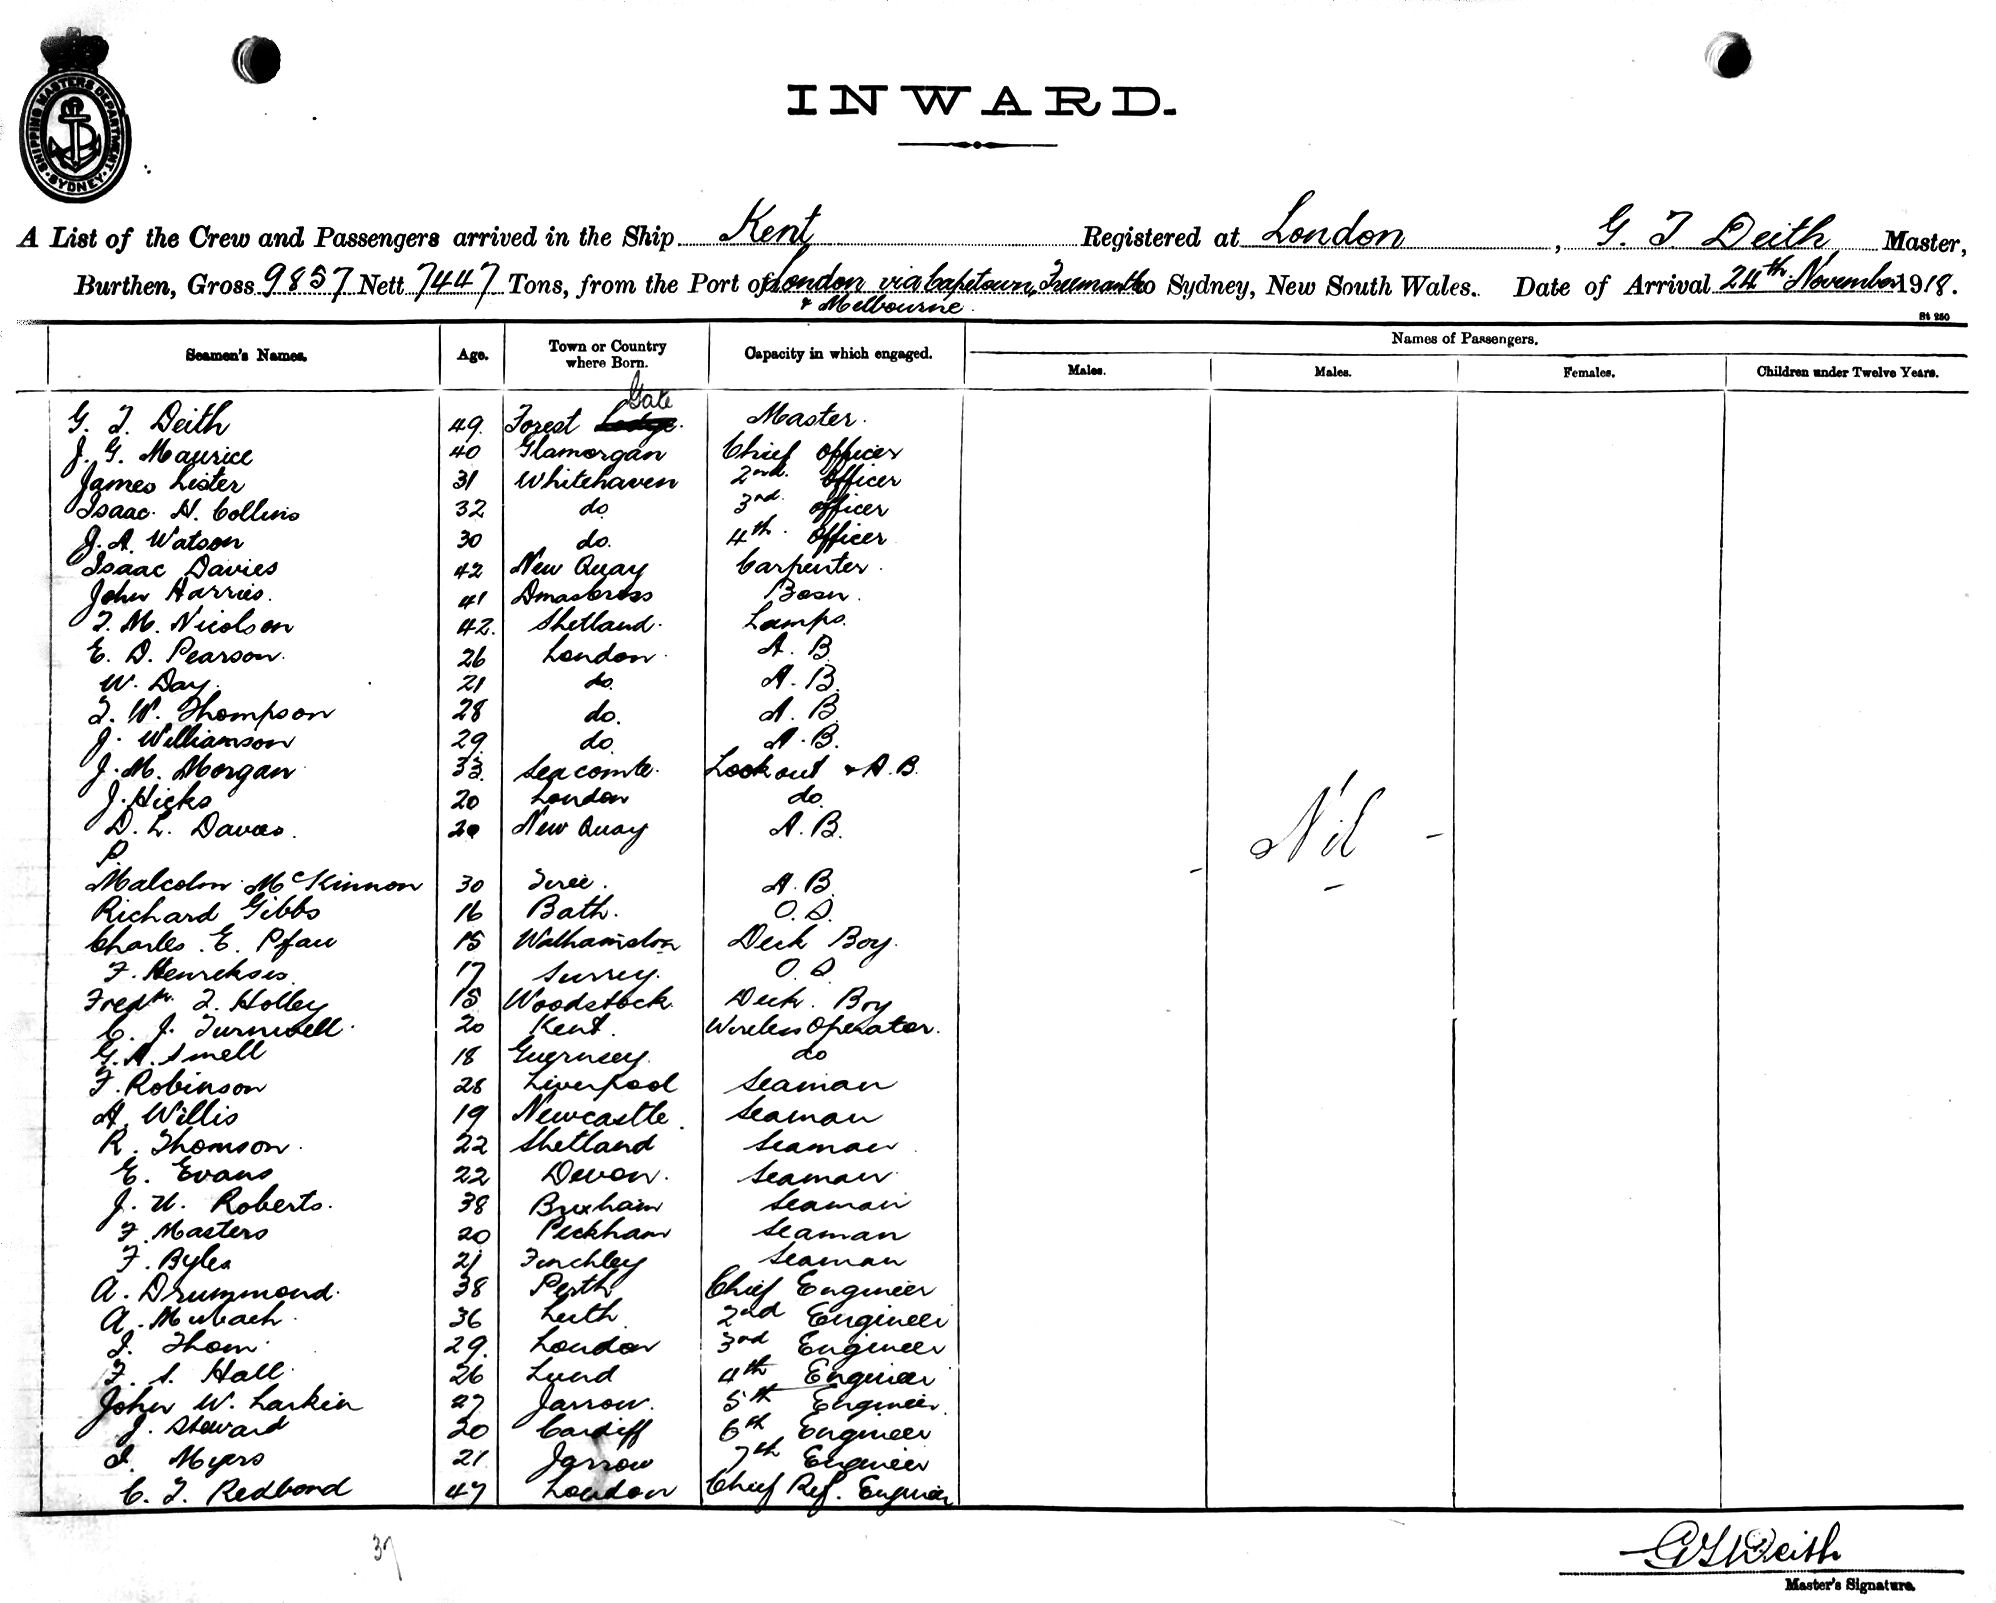 SHIPPING MASTERS DEPARTMENT. SYDNEY.
INWARD.
A List of the Crew and Passengers arrived in the Ship Kent Registered at London, G. T Deith Master,
Burthen, Gross 9857 Nett 7447 Tons, from the Port of London via Capetown, Freemantle to Sydney, New South Wales. Date of Arrival 24th November 1918.
& Melbourne.
St 250
Seamen's Names. Age. Town or Country where Born. Capacity in which engaged. Names of Passengers.
Males. Males. Females. Children under Twelve Years.
Gate
G. T. Deith 49. Forest Lodge. Master.
J. G. Maurice 40 Glamorgan Chief Officer
James Lister 31 Whitehaven 2nd. Officer
Isaac. H. Collins 32 do 3rd. Officer
J. A. Watson 30 do. 4th. Officer
Isaac Davies 42 New Quay Carpenter.
John Harries. 41 Bosn.
T. M. Nicolson 42. Shetland. Lamps.
E. D. Pearson. 26 London. A. B.
W. Day. 21 do. A. B.
T. W. Thompson 28 do. A. B.
J. Williamson 29. do. A. B.
J. M. Morgan 33. Seacombe. Lookout & A. B.
J. Hicks 20 London do.
D. L. Davies. 20 New Quay A. B.
P.
Malcolm McKinnon 30 Tiree. A. B.
Richard Gibbs 16 Bath. O. S.
Charles. E. Pfau 15 Walthamstow Deck Boy.
F. 17 Surrey. O. S.
Fredk. T. Holley 15 Woodstock. Deck. Boy
C. J. Turnwell. 20 Kent. Wireless Operator.
G. A. Smell 18 Guernsey. do
F. Robinson 28 Liverpool Seaman
A. Willis 19 Newcastle. Seaman
R. Thomson. 22 Shetland Seaman
E. Evans 22 Devon. Seaman
J. H. Roberts. 38 Brixham Seaman
F. Masters 20 Peckham Seaman
F. Byles 21 Finchley Seaman
A. Drummond. 38 Perth Chief Engineer
A. 36 Leith 2nd Engineer
J. Thom. 29. London 3rd Engineer
F. S. Hall. 26 4th Engineer
John W. Larkin 27 Jarrow. 5th Engineer.
J. Steward 20 Cardiff 6th Engineer
J. Myers 21 Jarrow 7th Engineer
C. T. Redbond 47 London Chief Ref. Engineer
- Nil -
37
G T Deith
Master's Signature.